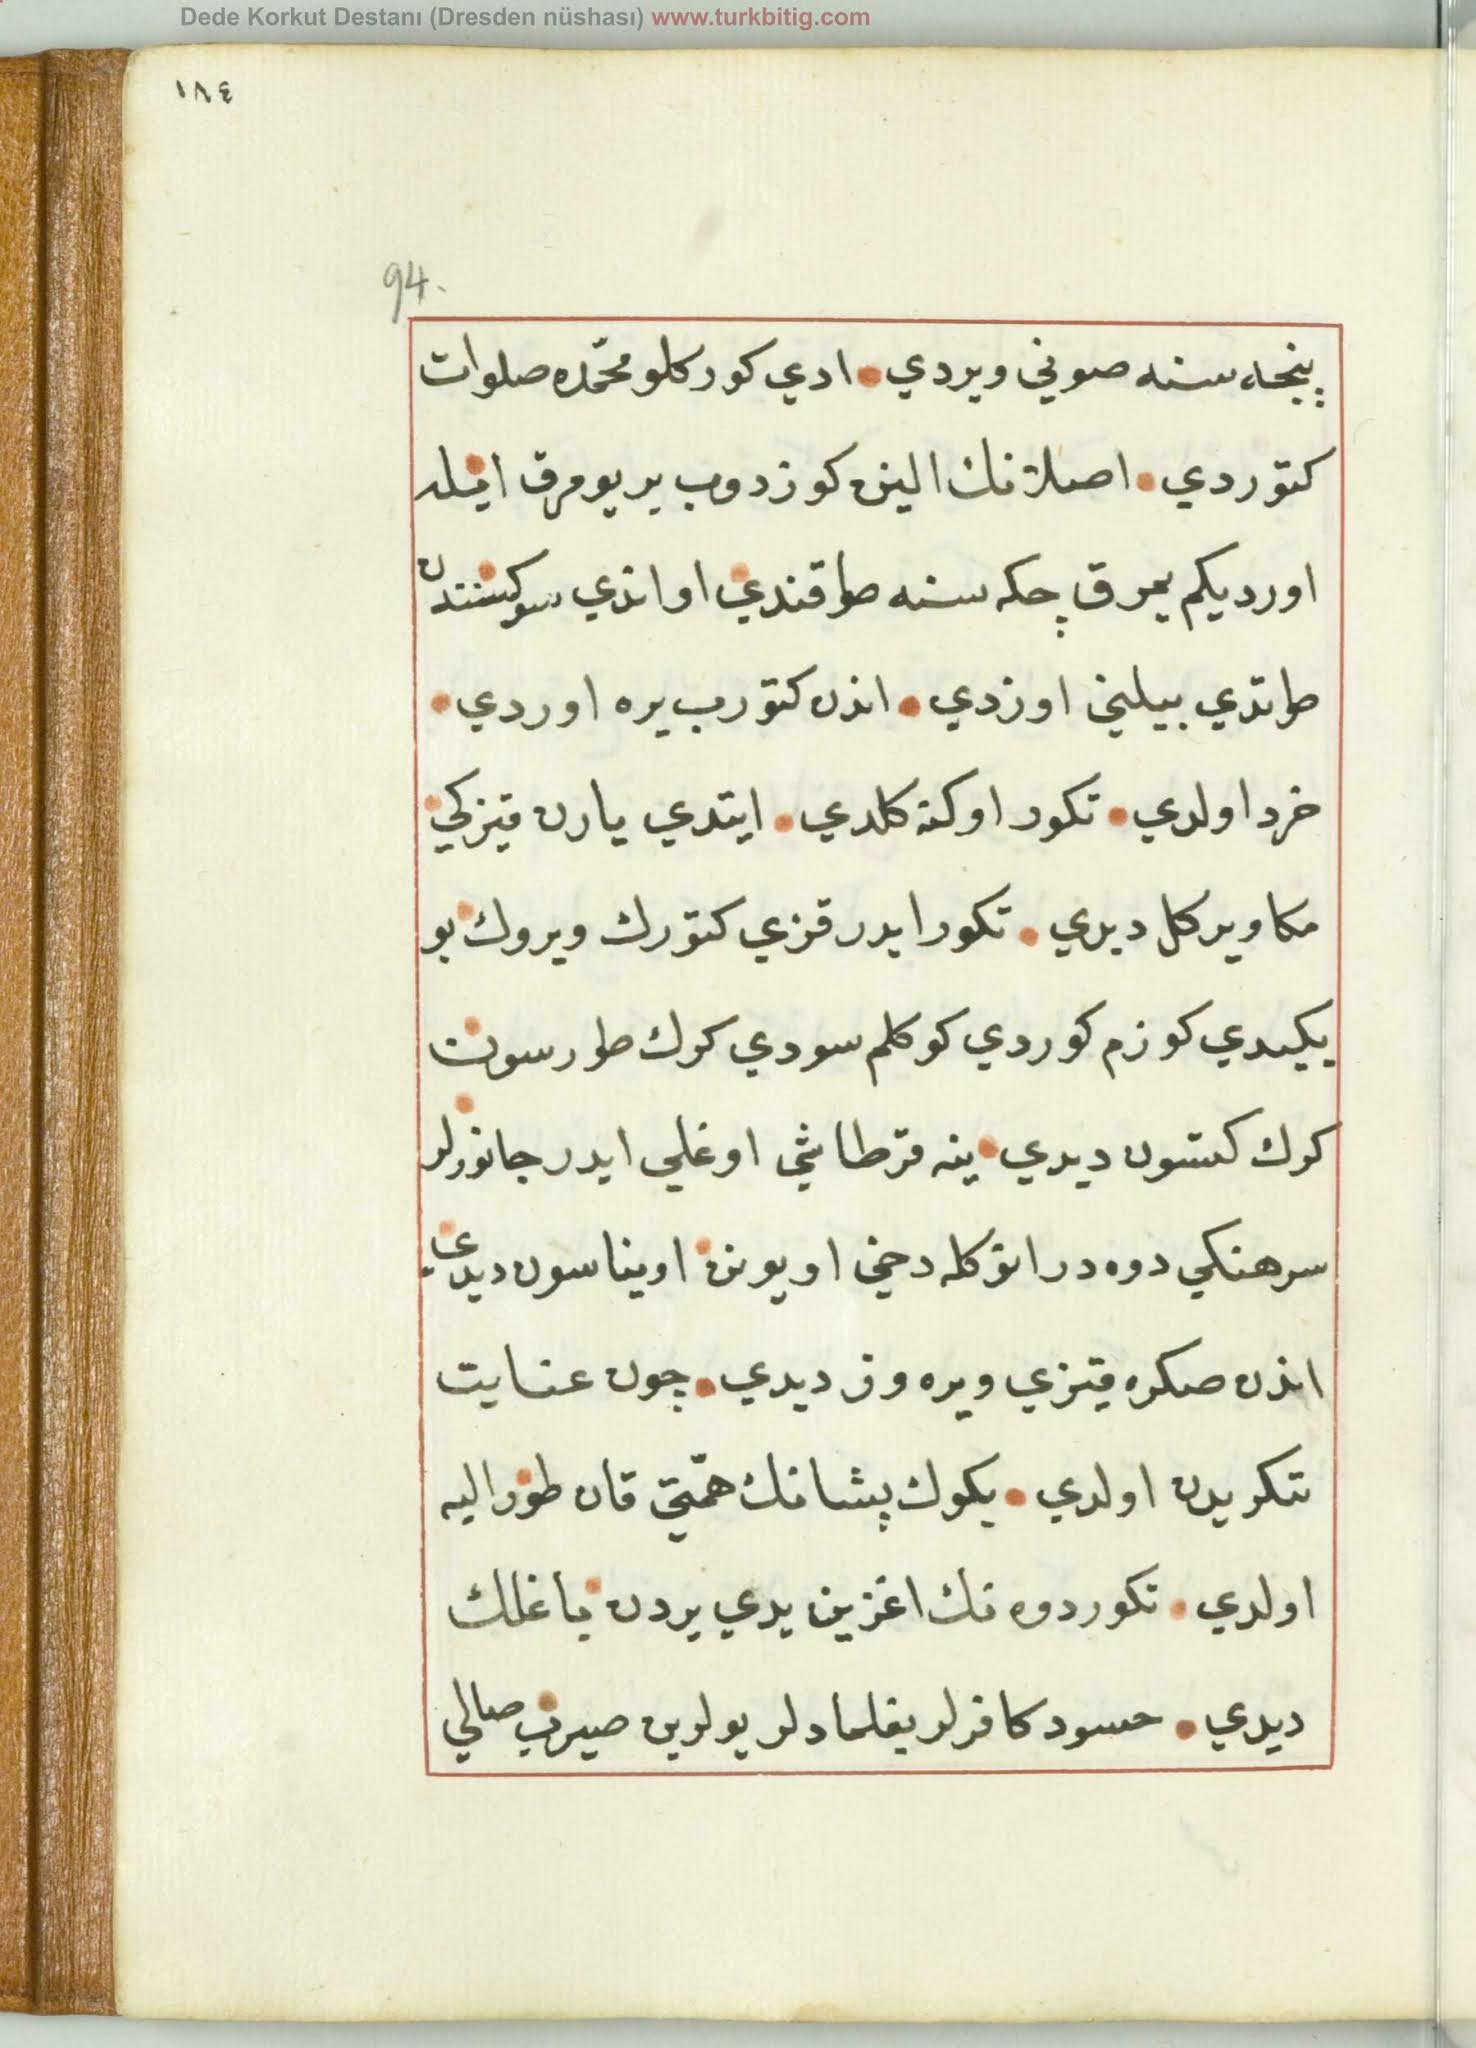 Dede Korkut Destanı (Dresden nüshası) www.turkbitig.com
١٨٤
94.
پنجه سنه صوني ويردي ادي كوركلو محمّده صلوات
كتوردي اصلانك الين كوزدوب بر يومرق ايله
اورديكم يمرق چكه سنه طاقندي اواندي سوكسنندن
طاتدي بيليني اوزدي اندن كتورب يره اوردي
خرد اولدي تكور اوكنه كلدي ايتدي يارن قيزكي
مكا ويركل ديدي تكور ايدر قزي كتورك ويروك بو
يكيدي كوزم كوردي كوكلم سودي كرك طورسون
كرك كتسون ديدي ينه قرطاشي اوغلي ايدر جانورلر
سرهنكي دوه در انوكله دخي اويونن اويناسون ديدي
اندن صكره قيزي ويره وز ديدي چون عنايت
تنكريدن اولدي بكوك پشانك همّتي قان طورالیه
اولدي تكور دوه نك اغزين يدي يردن باغلك
ديدي حسود كافرلر بغلمادلر يولرين صيرب صالي